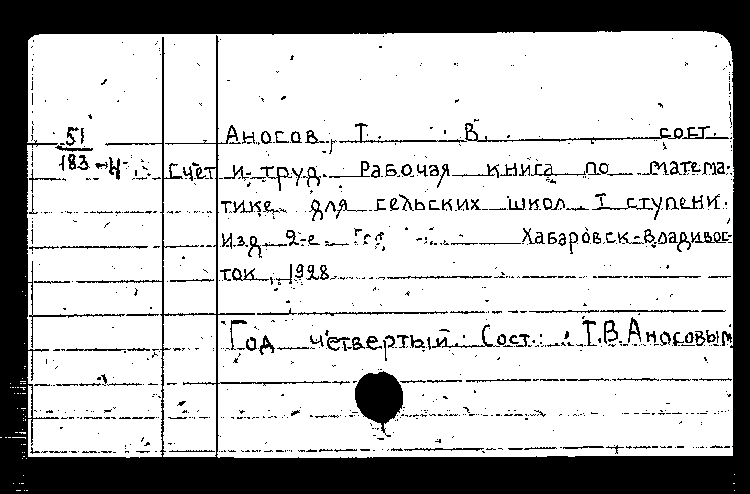 51
183-4
Аносов, Т. В. сост.
Счёт и труд. Рабочая книга по матема-
тике для сельских школ I ступени.
изд 2-е. Хабаровск-Владивос-
ток, 1928
Год четвертый. Сост.: Т.В.Аносовым